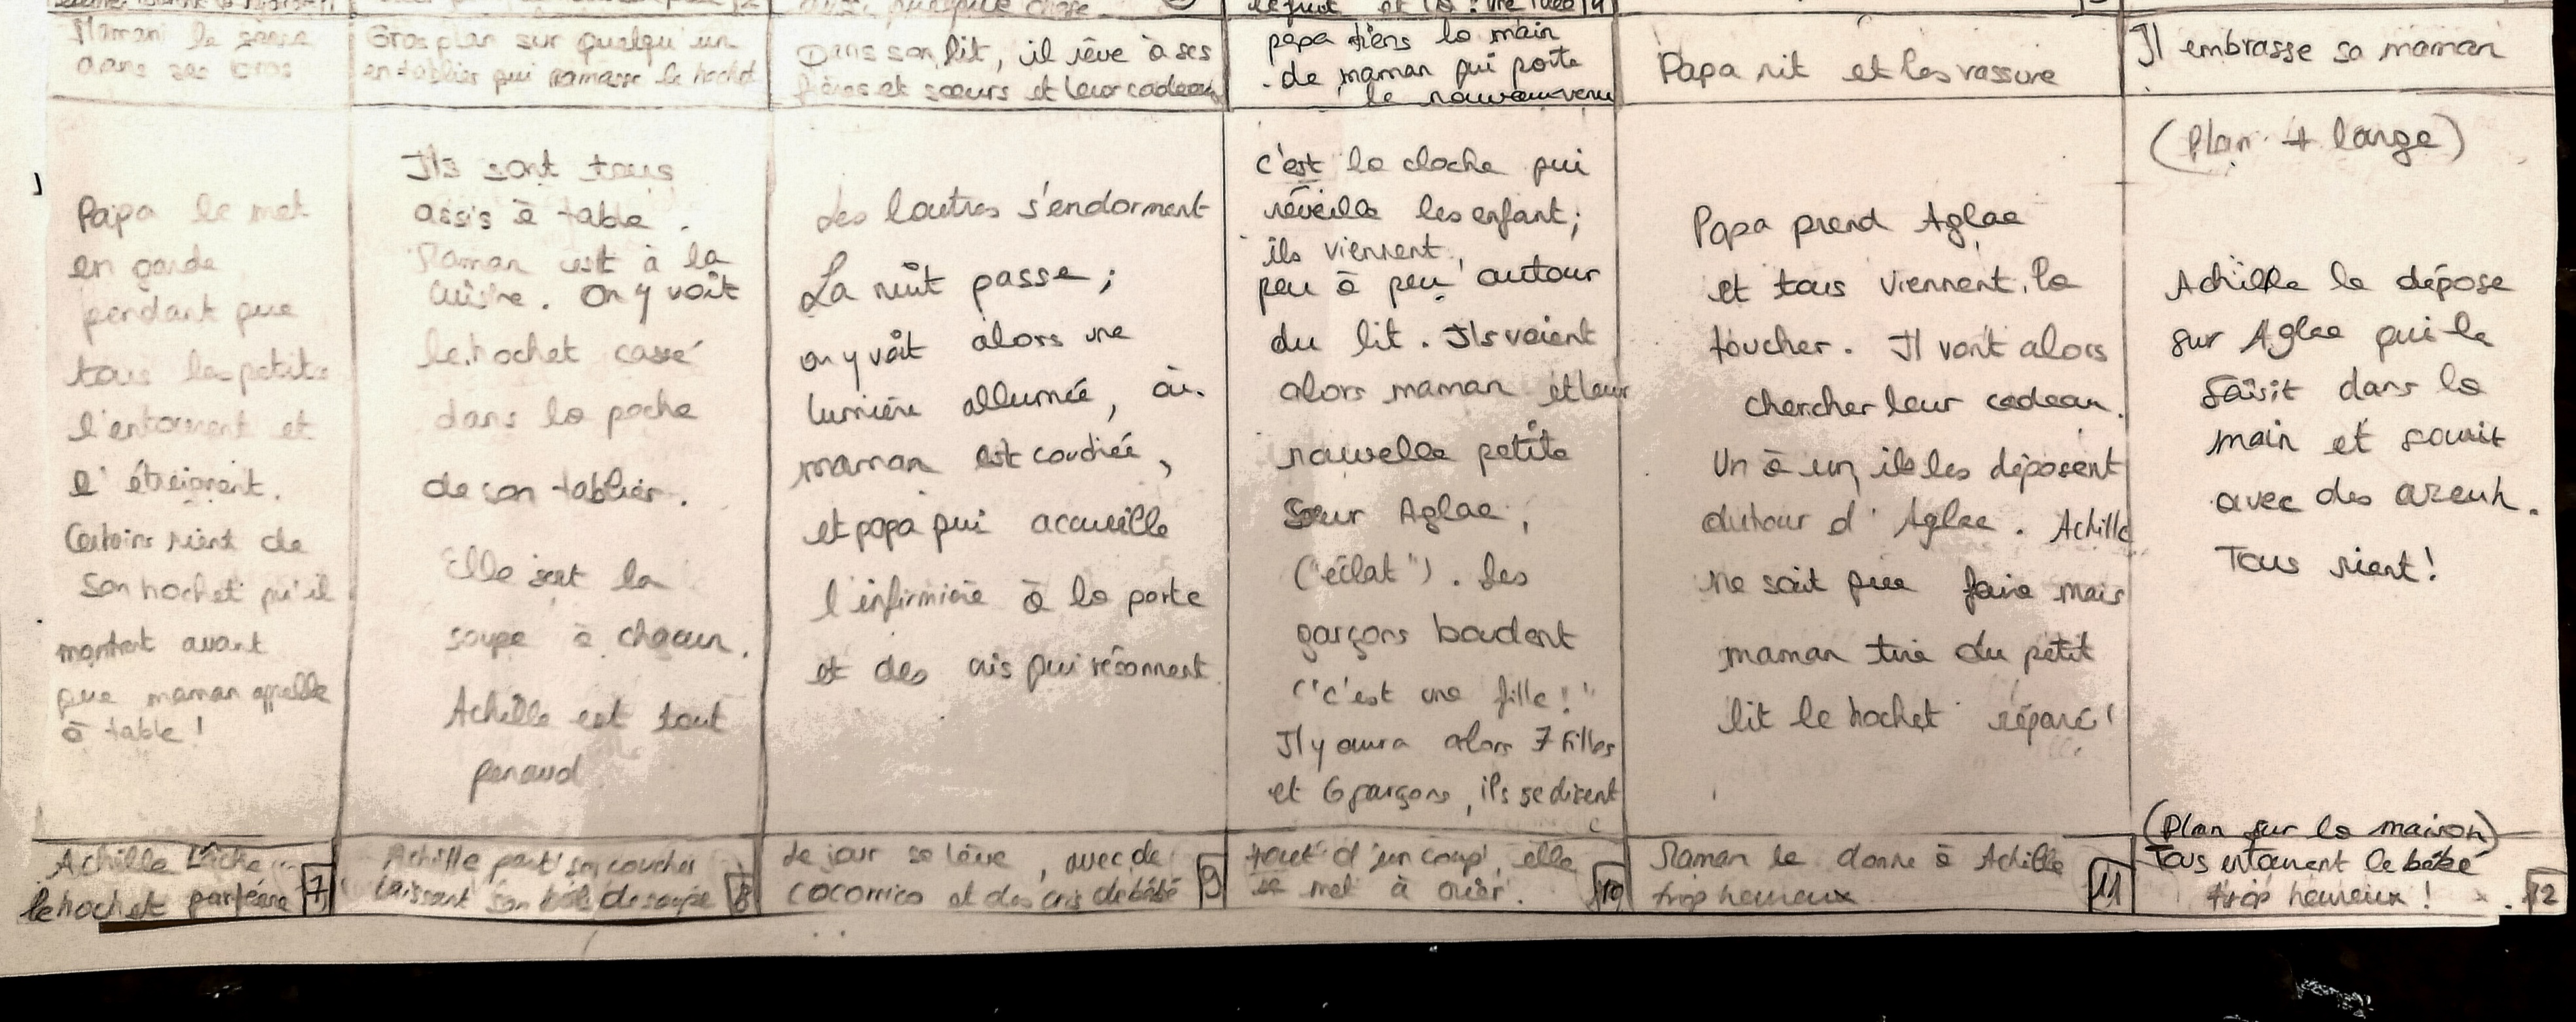 Maman le serre
dans ses bras
Papa le met
en garde
pendant que
tous les petits
l'entourent et
l'étreignent.
Certains rient de
son hochet qu'il
montrent avant
que maman appelle
à table !
Achille lâche
le hochet par terre
7
Gros plan sur quelqu'un
en tablier qui ramasse le hochet
Ils sont tous
assis à table.
Maman est à la
cuisine. On y voit
le hochet cassé
dans la poche
de son tablier.
Elle sert la
soupe à chacun.
Achille est tout
penaud
Achille part se coucher
laissant son bol de soupe
8
Dans son lit, il rêve à ses
frères et sœurs et leur cadeau
Les loutres s'endorment
La nuit passe ;
on y voit alors une
lumière allumée, où
maman est couchée,
et papa qui accueille
l'infirmière à la porte
et des cris qui résonnent
Le jour se lève, avec de
cocorrico et des cris de bébé
9
papa tiens la main
de maman qui porte
le nouveau venu
c'est la cloche qui
réveille les enfant ;
ils viennent
peu à peu autour
du lit. Ils voient
alors maman et leur
nouvelle petite
sœur Aglae,
("éclat"). Les
garçons boudent
("c'est une fille !"
Il y aura alors 7 filles
et 6 garçons, ils se disent
tout d'un coup, elle
se met à crier.
10
Papa rit et les rassure
Papa prend Aglae
et tous viennent la
toucher. Il vont alors
chercher leur cadeau.
Un à un, ils les déposent
autour d'Aglae. Achille
ne sait que faire mais
maman tire du petit
lit le hochet réparé !
Maman le donne à Achille
trop heureux
11
Il embrasse sa maman
(Plan + large)
Achille le dépose
sur Aglae qui le
saisit dans la
main et sourit
avec des areuh.
Tous rient !
(Plan sur la maison)
Tous entourent le bébé
trop heureux !
12